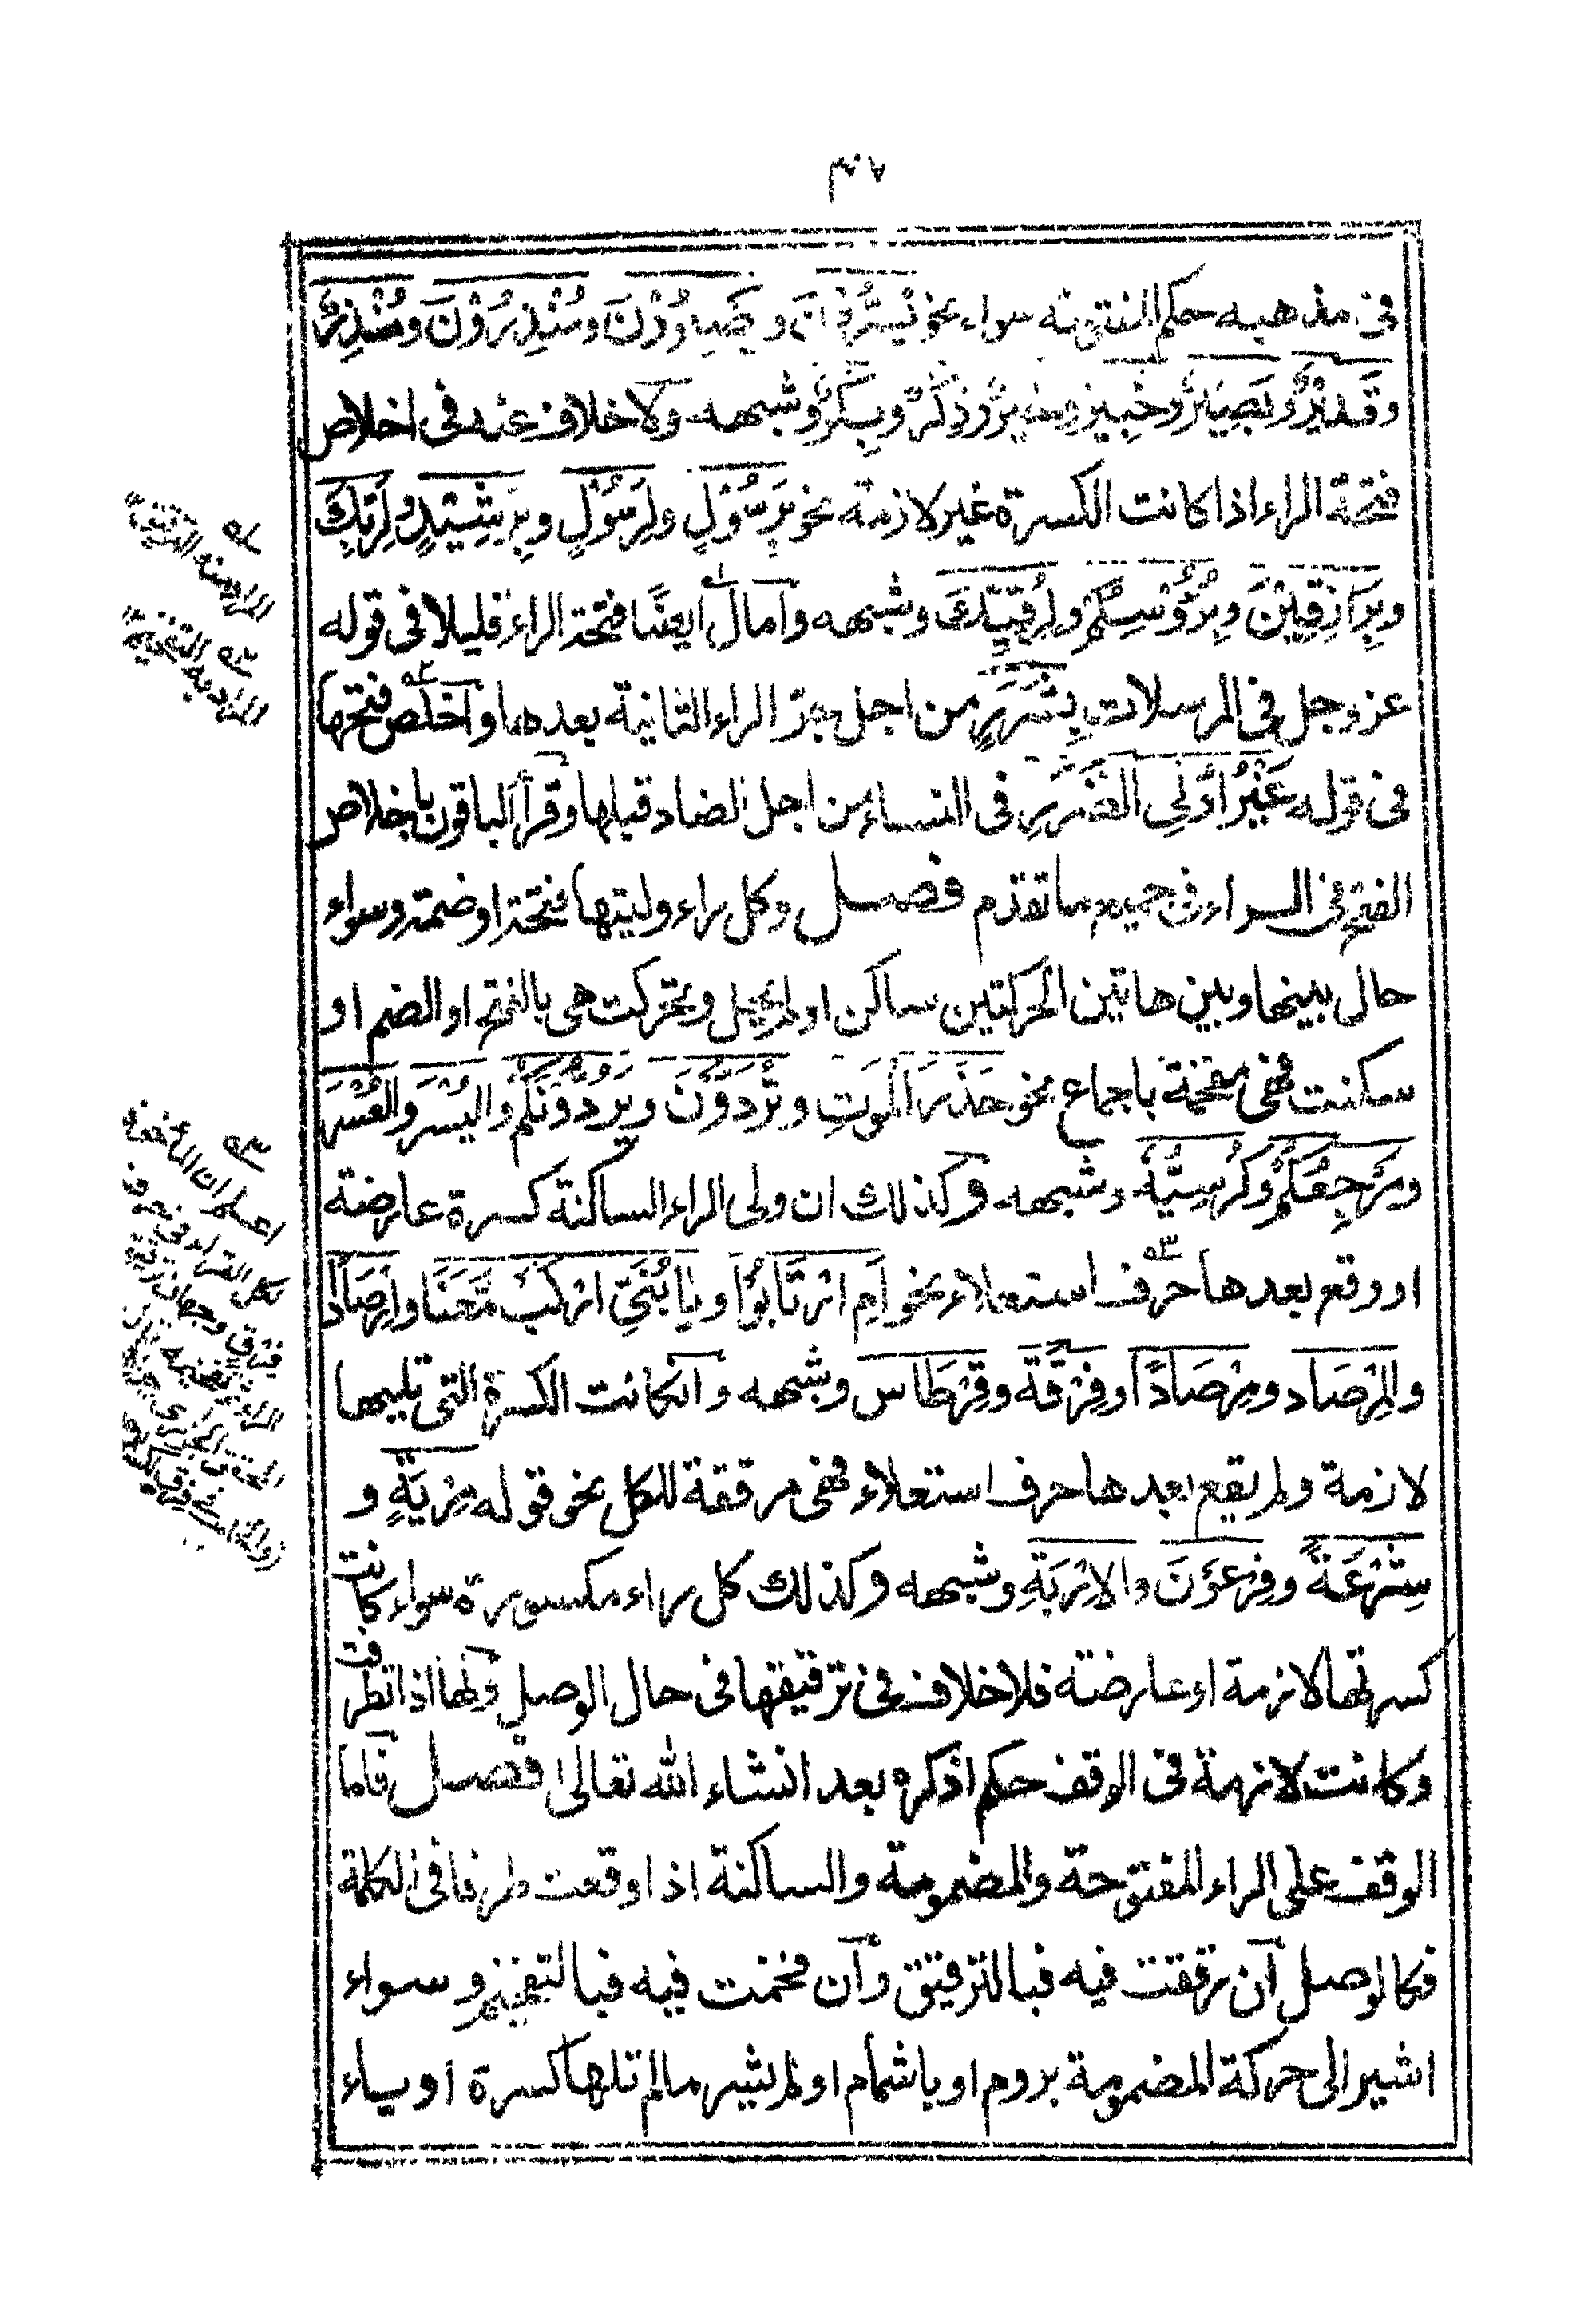 فى مذهبه حكم المفتوحة سواء نحو يُسِرُّوْنَ وَيُصِرُّوْنَ وَمُنْذِرُوْنَ وَمُنْذِرٌ
وَقَدِيْرٌ وَبَصِيْرٌ وَخَبِيْرٌ وَذِكْرٌ وَبِكْرٌ وشبهه ولا خلاف عنه فى اخلاص
فتحة الراء اذا كانت الكسرة غير لازمة نحو بِرَسُوْلٍ وَلِرَسُوْلٍ وَبِرَشِيْدٍ وَلِرَبِّكَ
وَبِرَازِقِيْنَ وَبِرُؤُسِكُمْ وَلِرُقِيِّكَ وشبهه وامال ايضًا فتحة الراء قليلا فى قوله
عز وجل فى المرسلات بِشَرَرٍ من اجل جر الراء الثانية بعدها واخلص فتحها
فى قوله غَيْرُ اُولِى الضَّرَرِ فى النساء من اجل الضاد قبلها وقرأ الباقون باخلاص
الفتح فى الراء فى جميع ما تقدم فصل وكل راء وليتها فتحة او ضمة وسواء
حال بينها وبين هاتين الحركتين ساكن او لم يحل وتحركت هى بالفتح او الضم او
سكنت فهى مفخمة باجماع نحو حَذَرَ الْمَوْتِ وَيُرَدُّوْنَ وَيَرُدُّوْنَكُمْ وَالْيُسْرَ وَالْعُسْرَ
وَمَرْجِعُكُمْ وَكُرْسِيُّهُ وشبهه وكذلك ان ولى الراء الساكنة كسرة عارضة
او وقع بعدها حرف استعلاء نحو اَمِ ارْتَابُوْا وَيَا بُنَيَّ ارْكَبْ مَّعَنَا وَاِرْصَادًا
وَالمِرْصَاد ومِرْصَادًا وفِرْقَة وقِرْطَاس وشبهه وان كانت الكسرة التى تليها
لازمة ولم يقع بعدها حرف استعلاء فهى مرققة للكل نحو قوله مِرْيَةٍ و
شِرْعَةً وفِرْعَوْنَ والاِرْبَةِ وشبهه وكذلك كل راء مكسورة سواء كانت
كسرتها لازمة او عارضة فلا خلاف فى ترقيقها فى حال الوصل ولها اذا تطرفت
وكانت لازمة فى الوقف حكم اذكره بعد انشاء الله تعالى فصل فاما
الوقف على الراء المفتوحة والمضمومة والساكنة اذا وقعت طرفا فى الكلمة
فكالوصل ان رققت فيه فبالترقيق وان فخمت فيه فبالتفخيم وسواء
اشير الى حركة المضمومة بروم او باشمام او لم يشر ما لم تلها كسرة او ياء